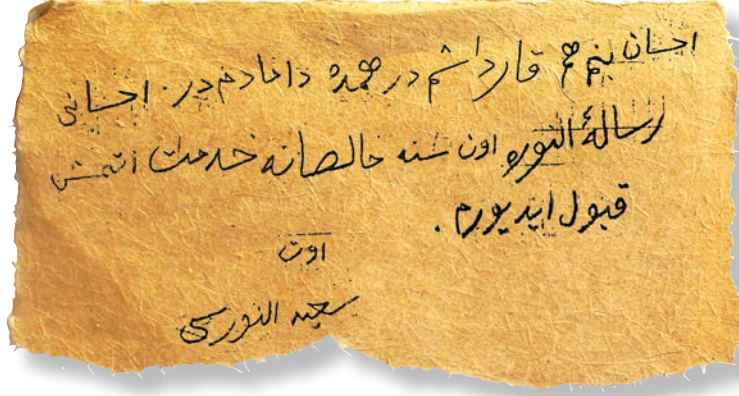 احسان بنم هم قارداشم در همده دامادم در. احسانی
رسالهٔ النوره اون سنه خالصانه خدمت اتمش
قبول ایدیورم.
اون
سعید النورسی